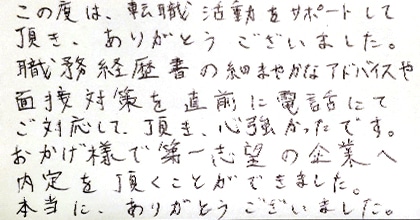 この度は、転職活動をサポートして
頂き、ありがとうございました。
職務経歴書の細まやかなアドバイスや
面接対策を直前に電話にて
ご対応して頂き、心強かったです。
おかげ様で第一志望の企業へ
内定を頂くことができました。
本当に、ありがとうございました。